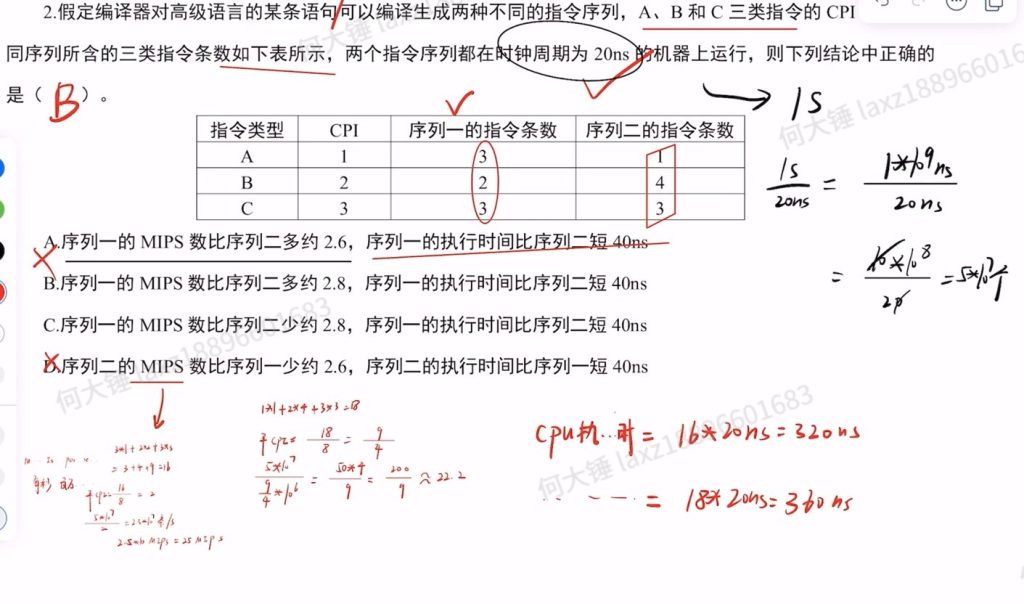 2.假定编译器对高级语言的某条语句可以编译生成两种不同的指令序列，A、B 和 C 三类指令的 CPI
同序列所含的三类指令条数如下表所示，两个指令序列都在时钟周期为 20ns 的机器上运行，则下列结论中正确的
是（ B ）。
1S
指令类型 CPI 序列一的指令条数 序列二的指令条数
A 1 3 1
B 2 2 4
C 3 3 3
1s/20ns = 1*10^9ns/20ns
= 10*10^8/20 = 5*10^7个
A.序列一的 MIPS 数比序列二多约 2.6，序列一的执行时间比序列二短 40ns
B.序列一的 MIPS 数比序列二多约 2.8，序列一的执行时间比序列二短 40ns
C.序列一的 MIPS 数比序列二少约 2.8，序列一的执行时间比序列二短 40ns
D.序列二的 MIPS 数比序列一少约 2.6，序列二的执行时间比序列一短 40ns
3*1+2*2+3*3
=3+4+9=16
平cpi=16/8=2
5*10^7/2=2.5*10^7条/s
=25MIPS
1*1+2*4+3*3=18
平cpi=18/8=9/4
5*10^7/(9/4*10^6)=50*4/9=200/9≈22.2
CPU执...时=16*20ns=320ns
=18*20ns=360ns
何大锤 laxz18896601683
何大锤 laxz18896601683